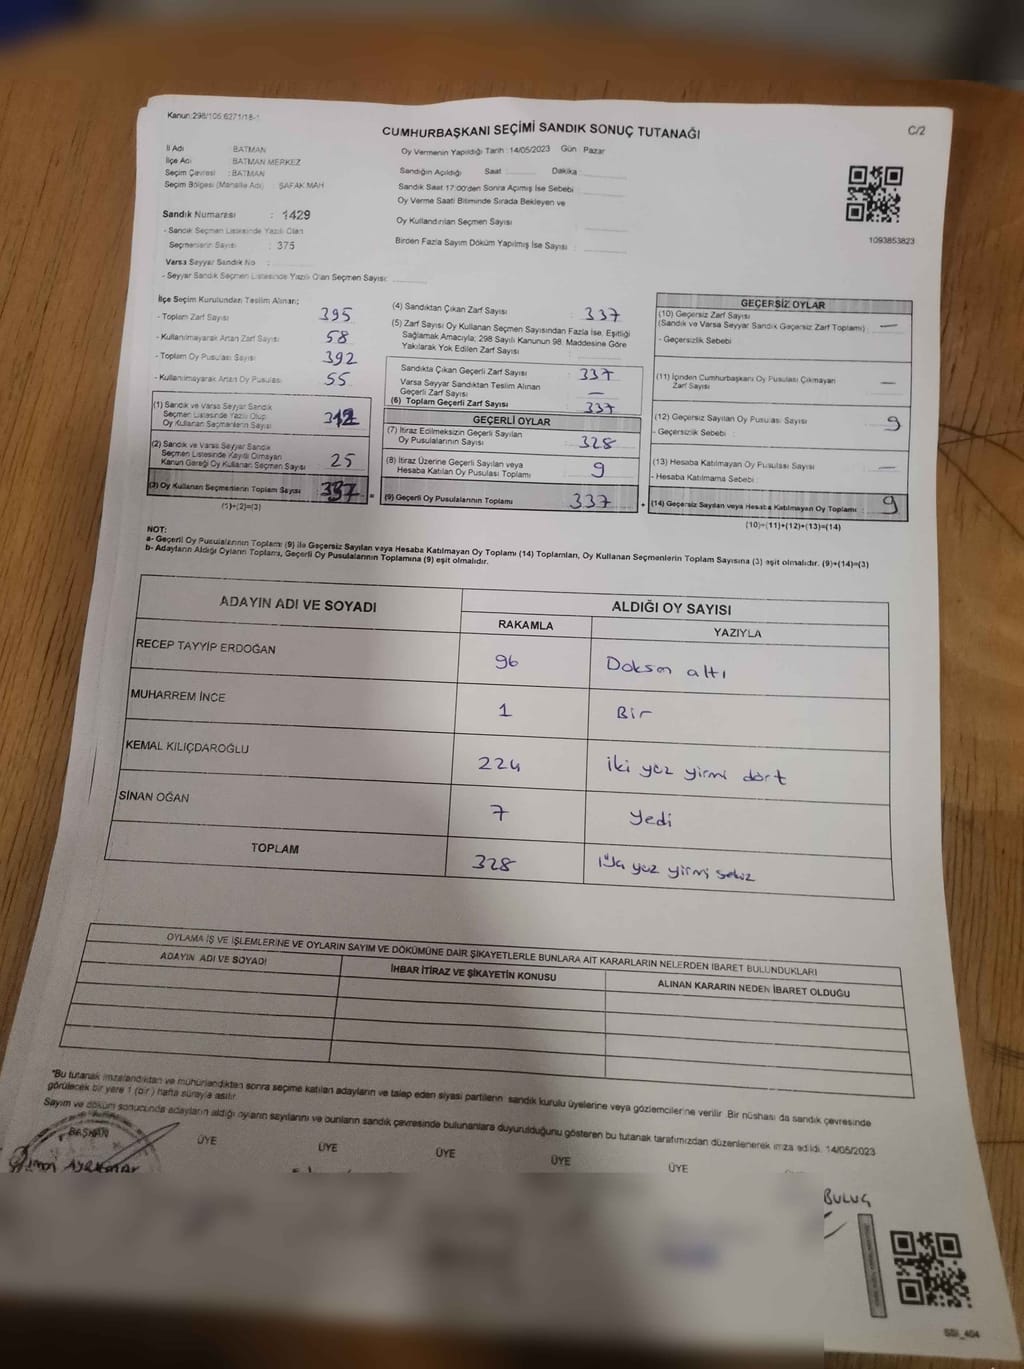 Kanun:298/105.6271/18-1
CUMHURBAŞKANI SEÇİMİ SANDIK SONUÇ TUTANAĞI
C/2
İl Adı : BATMAN
İlçe Adı : BATMAN MERKEZ
Seçim Çevresi : BATMAN
Seçim Bölgesi (Mahalle Adı) : ŞAFAK MAH
Sandık Numarası : 1429
- Sandık Seçmen Listesinde Yazılı Olan
Seçmenlerin Sayısı : 375
Varsa Seyyar Sandık No :
- Seyyar Sandık Seçmen Listesinde Yazılı Olan Seçmen Sayısı:
Oy Vermenin Yapıldığı Tarih :14/05/2023 Gün : Pazar
Sandığın Açıldığı Saat : Dakika :
Sandık Saat 17:00'den Sonra Açılmış İse Sebebi :
Oy Verme Saati Bitiminde Sırada Bekleyen ve
Oy Kullandırılan Seçmen Sayısı :
Birden Fazla Sayım Döküm Yapılmış İse Sayısı :
1093853823
İlçe Seçim Kurulundan Teslim Alınan;
- Toplam Zarf Sayısı 395
- Kullanılmayarak Artan Zarf Sayısı 58
- Toplam Oy Pusulası Sayısı 392
- Kullanılmayarak Artan Oy Pusulası 55
(1) Sandık ve Varsa Seyyar Sandık
Seçmen Listesinde Yazılı Olup
Oy Kullanan Seçmenlerin Sayısı 312
(2) Sandık ve Varsa Seyyar Sandık
Seçmen Listesinde Kayıtlı Olmayan
Kanun Gereği Oy Kullanan Seçmen Sayısı 25
(3) Oy Kullanan Seçmenlerin Toplam Sayısı 337 =
(1)+(2)=(3)
(4) Sandıktan Çıkan Zarf Sayısı : 337
(5) Zarf Sayısı Oy Kullanan Seçmen Sayısından Fazla İse, Eşitliği
Sağlamak Amacıyla; 298 Sayılı Kanunun 98. Maddesine Göre
Yakılarak Yok Edilen Zarf Sayısı :
Sandıkta Çıkan Geçerli Zarf Sayısı : 337
Varsa Seyyar Sandıktan Teslim Alınan
Geçerli Zarf Sayısı : —
(6) Toplam Geçerli Zarf Sayısı : 337
GEÇERLİ OYLAR
(7) İtiraz Edilmeksizin Geçerli Sayılan
Oy Pusulalarının Sayısı : 328
(8) İtiraz Üzerine Geçerli Sayılan veya
Hesaba Katılan Oy Pusulası Toplamı : 9
(9) Geçerli Oy Pusulalarının Toplamı : 337 +
GEÇERSİZ OYLAR
(10) Geçersiz Zarf Sayısı
(Sandık ve Varsa Seyyar Sandık Geçersiz Zarf Toplamı) : —
- Geçersizlik Sebebi :
(11) İçinden Cumhurbaşkanı Oy Pusulası Çıkmayan
Zarf Sayısı : —
(12) Geçersiz Sayılan Oy Pusulası Sayısı : 9
- Geçersizlik Sebebi :
(13) Hesaba Katılmayan Oy Pusulası Sayısı : —
- Hesaba Katılmama Sebebi :
(14) Geçersiz Sayılan veya Hesaba Katılmayan Oy Toplamı : 9
(10)+(11)+(12)+(13)=(14)
NOT:
a- Geçerli Oy Pusulalarının Toplamı (9) ile Geçersiz Sayılan veya Hesaba Katılmayan Oy Toplamı (14) Toplamları, Oy Kullanan Seçmenlerin Toplam Sayısına (3) eşit olmalıdır. (9)+(14)=(3)
b- Adayların Aldığı Oyların Toplamı, Geçerli Oy Pusulalarının Toplamına (9) eşit olmalıdır.
ADAYIN ADI VE SOYADI
ALDIĞI OY SAYISI
RAKAMLA YAZIYLA
RECEP TAYYİP ERDOĞAN 96 Doksan altı
MUHARREM İNCE 1 Bir
KEMAL KILIÇDAROĞLU 224 iki yüz yirmi dört
SİNAN OĞAN 7 yedi
TOPLAM 328 yüz yirmi sekiz
OYLAMA İŞ VE İŞLEMLERİNE VE OYLARIN SAYIM VE DÖKÜMÜNE DAİR ŞİKAYETLERLE BUNLARA AİT KARARLARIN NELERDEN İBARET BULUNDUKLARI
ADAYIN ADI VE SOYADI İHBAR İTİRAZ VE ŞİKAYETİN KONUSU ALINAN KARARIN NEDEN İBARET OLDUĞU
*Bu tutanak imzalandıktan ve mühürlendikten sonra seçime katılan adayların ve talep eden siyasi partilerin sandık kurulu üyelerine veya gözlemcilerine verilir. Bir nüshası da sandık çevresinde
görülecek bir yere 1 (bir) hafta süreyle asılır.
Sayım ve döküm sonucunda adayların aldığı oyların sayılarını ve bunların sandık çevresinde bulunanlara duyurulduğunu gösteren bu tutanak tarafımızdan düzenlenerek imza edildi. 14/05/2023
BAŞKAN ÜYE ÜYE ÜYE ÜYE ÜYE
BULUÇ
SSİ_404